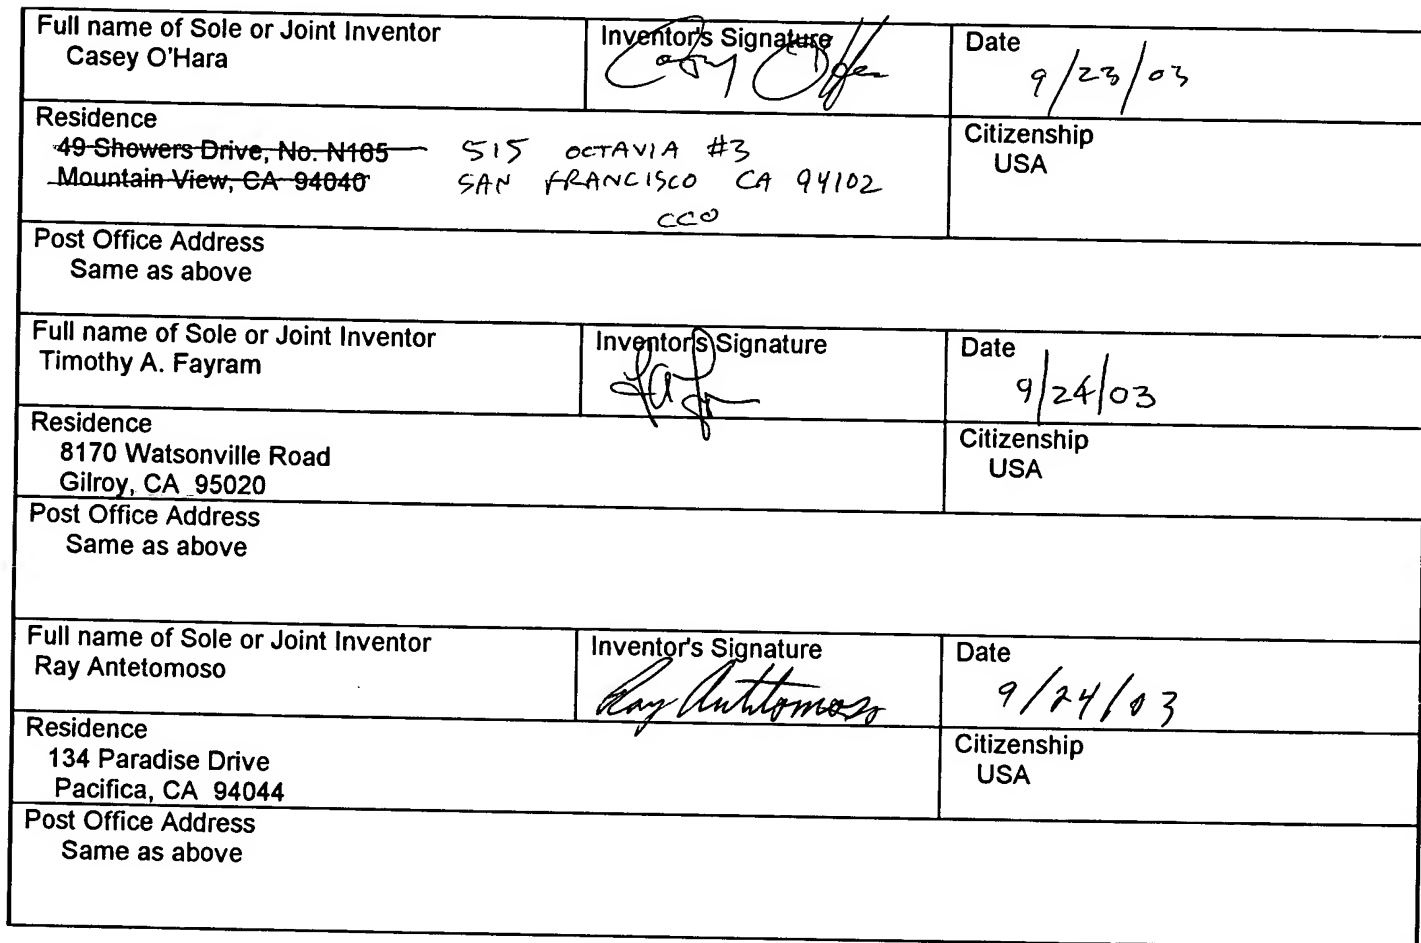 Full name of Sole or Joint Inventor
Casey O'Hara
Inventor's Signature
Casey O'Hara
Date
9/23/03
Residence
49 Showers Drive, No. N165 515 OCTAVIA #3
Mountain View, CA 94040 SAN FRANCISCO CA 94102
CCO
Citizenship
USA
Post Office Address
Same as above
Full name of Sole or Joint Inventor
Timothy A. Fayram
Inventor's Signature
Date
9/24/03
Residence
8170 Watsonville Road
Gilroy, CA 95020
Citizenship
USA
Post Office Address
Same as above
Full name of Sole or Joint Inventor
Ray Antetomoso
Inventor's Signature
Ray Antetomoso
Date
9/24/03
Residence
134 Paradise Drive
Pacifica, CA 94044
Citizenship
USA
Post Office Address
Same as above